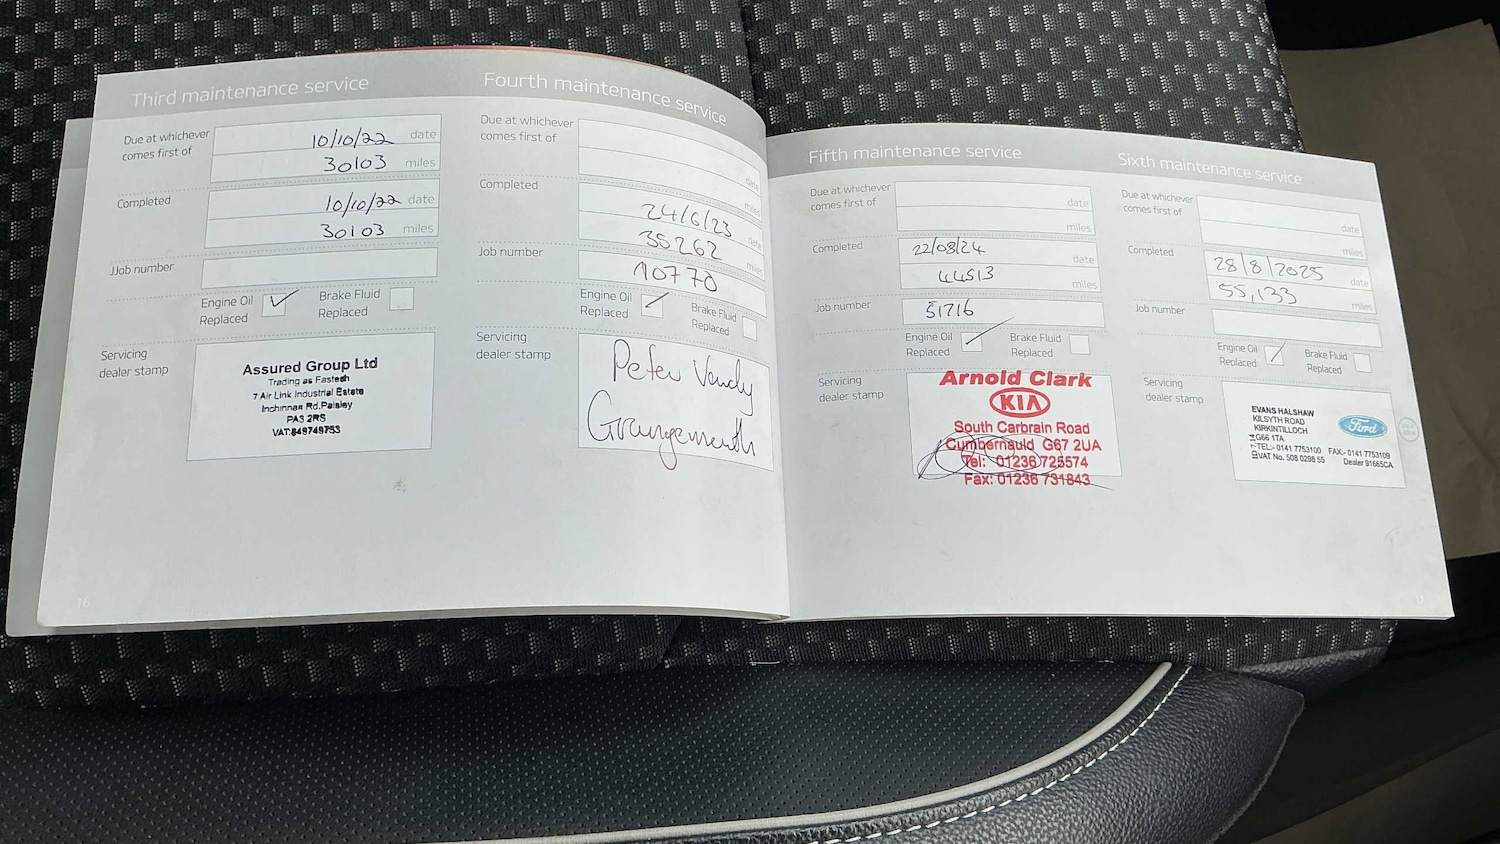 Third maintenance service
Due at whichever
comes first of
10/10/22 date
30103 miles
Completed
10/10/22 date
30103 miles
JJob number
Engine Oil
Replaced
Brake Fluid
Replaced
Servicing
dealer stamp
Assured Group Ltd
Trading as Fastech
7 Air Link Industrial Estate
Inchinnan Rd,Paisley
PA3 2RS
VAT:849749753
16
Fourth maintenance service
Due at whichever
comes first of
date
miles
Completed
24/6/23 date
35262 miles
Job number
10770
Engine Oil
Replaced
Brake Fluid
Replaced
Servicing
dealer stamp
Peter Vardy
Grangemouth
Fifth maintenance service
Due at whichever
comes first of
date
miles
Completed
22/08/24 date
44513 miles
Job number
51716
Engine Oil
Replaced
Brake Fluid
Replaced
Servicing
dealer stamp
Arnold Clark
KIA
South Carbrain Road
Cumbernauld G67 2UA
Tel: 01236 725574
Fax: 01236 731843
Sixth maintenance service
Due at whichever
comes first of
date
miles
Completed
28/8/2025 date
55,133 miles
Job number
Engine Oil
Replaced
Brake Fluid
Replaced
Servicing
dealer stamp
EVANS HALSHAW
KILSYTH ROAD
KIRKINTILLOCH
G66 1TA
TEL:- 0141 7753100 FAX:- 0141 7753109
VAT No. 508 0298 55 Dealer 91665CA
Ford